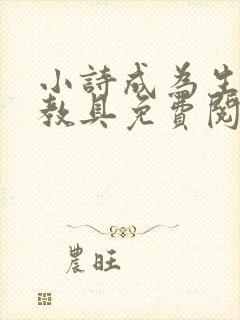 小詩成為生
教具免費閱
農旺